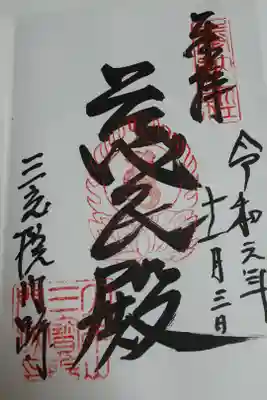 奉拝
令和元年
十一月三日
慈氏殿
三宝院門跡